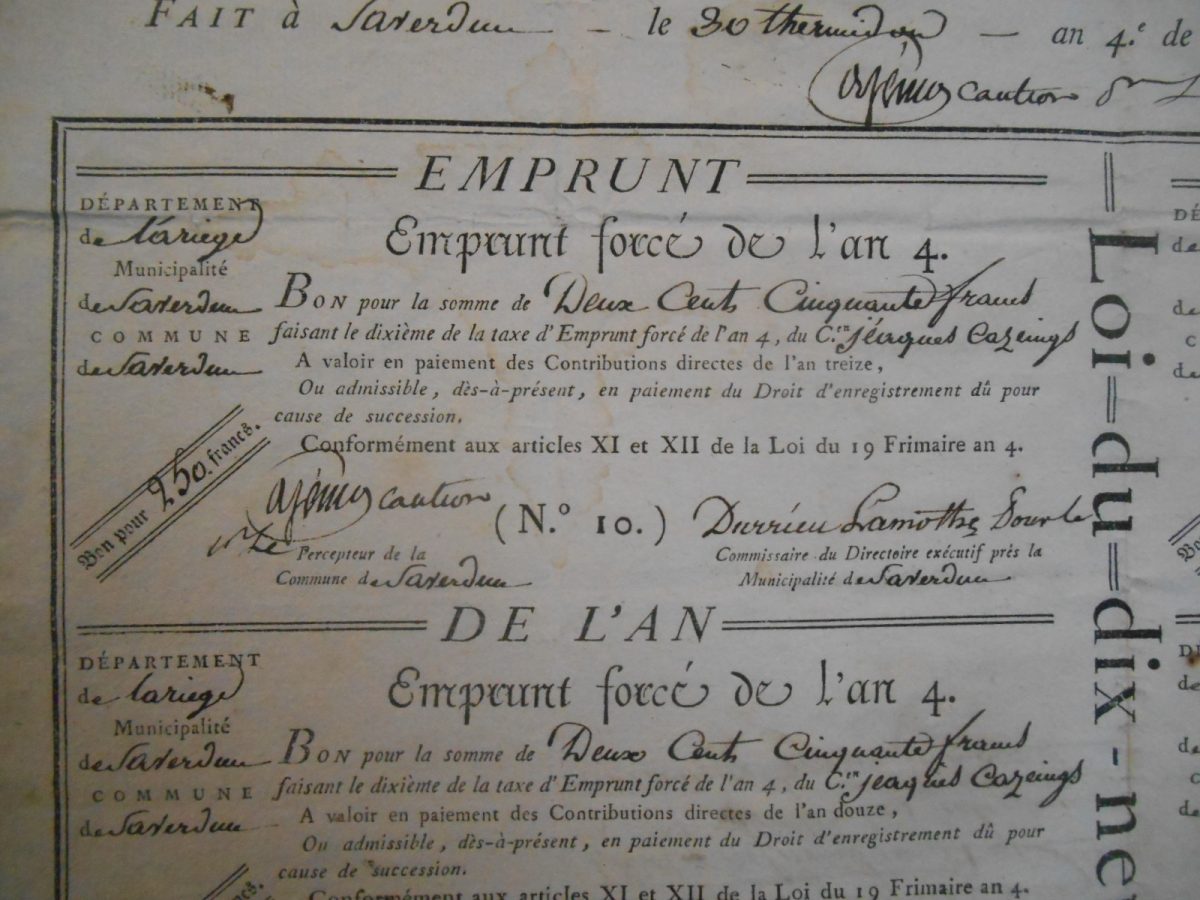 FAIT à Saverdun — le 30 thermidor — an 4.e de
caution
EMPRUNT
DÉPARTEMENT
de lariege
Municipalité
de Saverdun
COMMUNE
de Saverdun
Emprunt forcé de l'an 4.
BON pour la somme de Deux Cents Cinquante francs
faisant le dixième de la taxe d'Emprunt forcé de l'an 4, du C.en jeaques Cazeings
A valoir en paiement des Contributions directes de l'an treize,
Ou admissible, dès-à-présent, en paiement du Droit d'enregistrement dû pour
cause de succession.
Conformément aux articles XI et XII de la Loi du 19 Frimaire an 4.
Bon pour 250 francs.
caution
(N.o 10.)
Durrieu Lamothe
Percepteur de la
Commune de Saverdun
Commissaire du Directoire exécutif près la
Municipalité de Saverdun
DE L'AN
DÉPARTEMENT
de lariege
Municipalité
de Saverdun
COMMUNE
de Saverdun
Emprunt forcé de l'an 4.
BON pour la somme de Deux Cents Cinquante francs
faisant le dixième de la taxe d'Emprunt forcé de l'an 4, du C.en jeaques Cazeings
A valoir en paiement des Contributions directes de l'an douze,
Ou admissible, dès-à-présent, en paiement du Droit d'enregistrement dû pour
cause de succession.
Conformément aux articles XI et XII de la Loi du 19 Frimaire an 4.
Loi-du-dix-neu